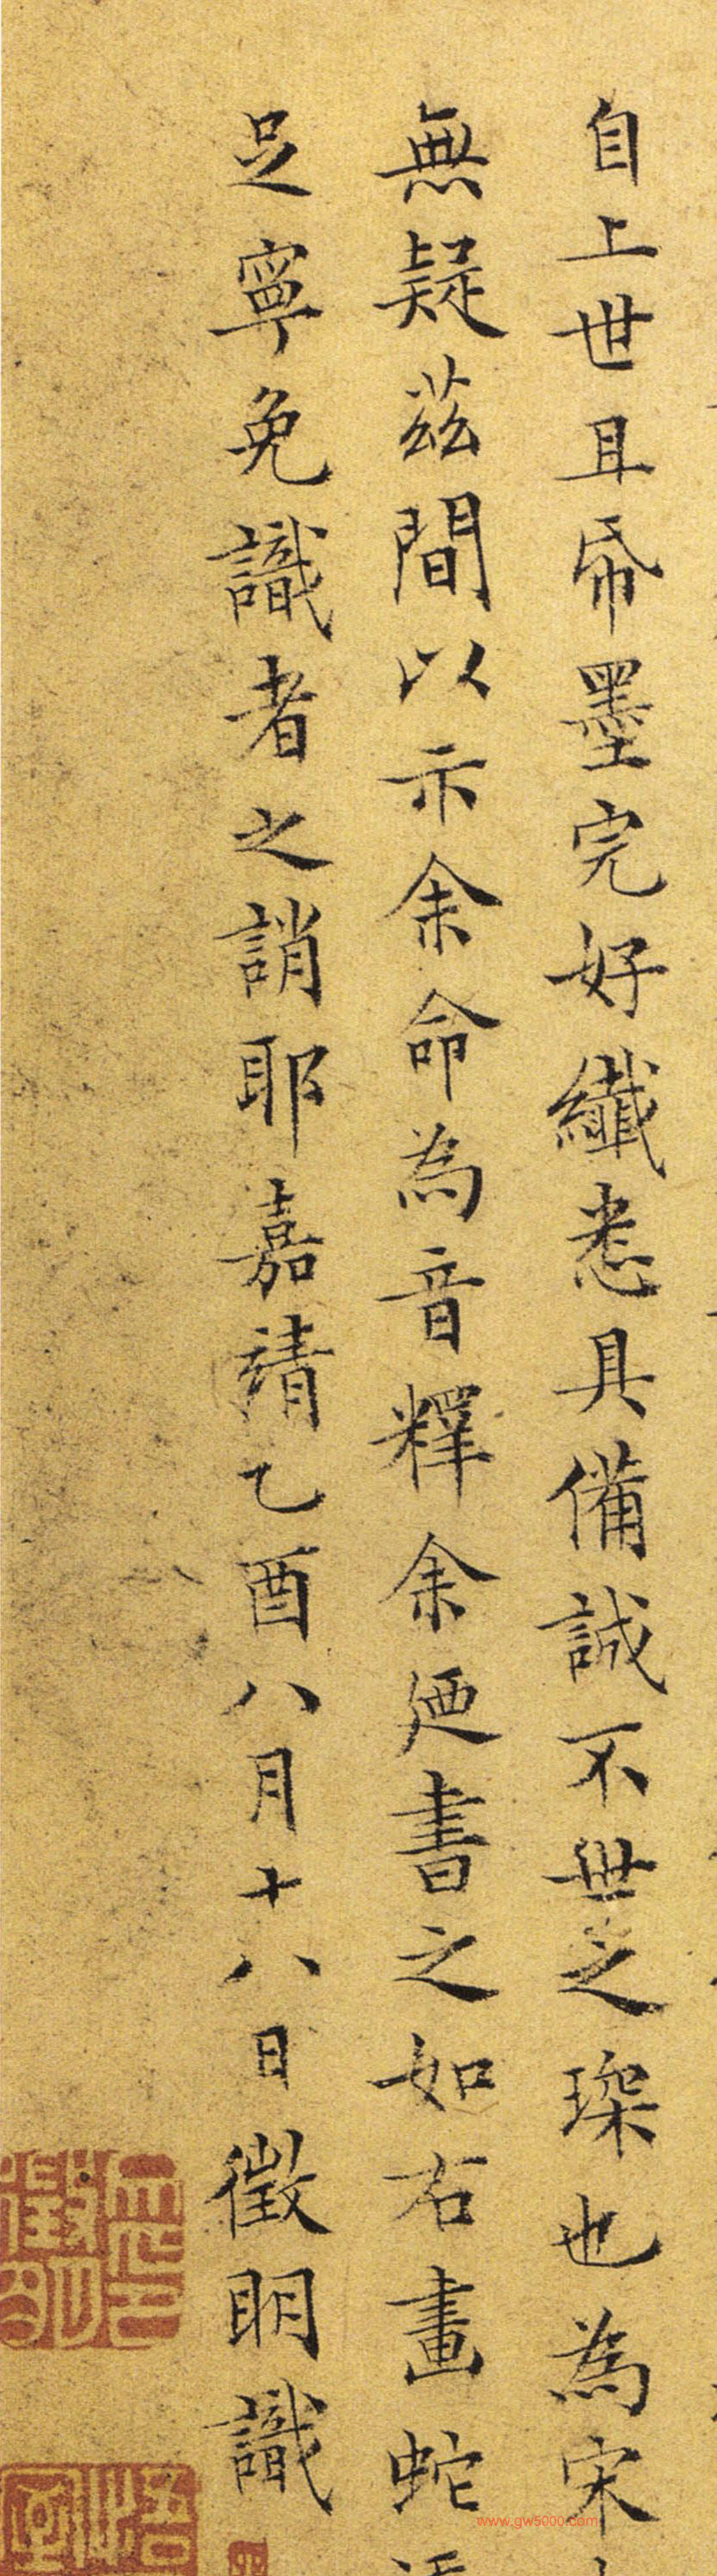 自上世且帋墨完好纖悉具備誠不世之琛也為宋
無疑茲間以示余命為音釋余廼書之如右畫蛇
足寧免識者之誚耶嘉靖乙酉八月十八日徵明識
www.gw5000.com